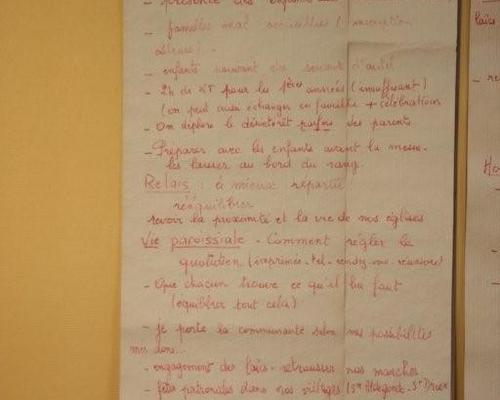 - présence des
- familles mal accueillies (inscription
- enfants servant de
- 2h de KT pour les 1ères années (insuffisant)
(on peut aussi échanger en famille + célébrations
- On déplore le désintérêt parfois des parents
- Préparer avec les enfants avant la messe
les laisser au bord du rang.
Relais : à mieux répartir
rééquilibrer
revoir la proximité et la vie de nos églises
Vie paroissiale - Comment régler le
quotidien (imprimée - tel - rendez-vous - réunions)
- Que chacun trouve ce qu'il lui faut
(équilibrer tout cela)
- je porte la communauté selon mes possibilités
mes dons...
- engagement des laïcs - retrousser nos manches
- fêtes patronales dans nos villages (Ste Aldegonde - St Druon
laïcs